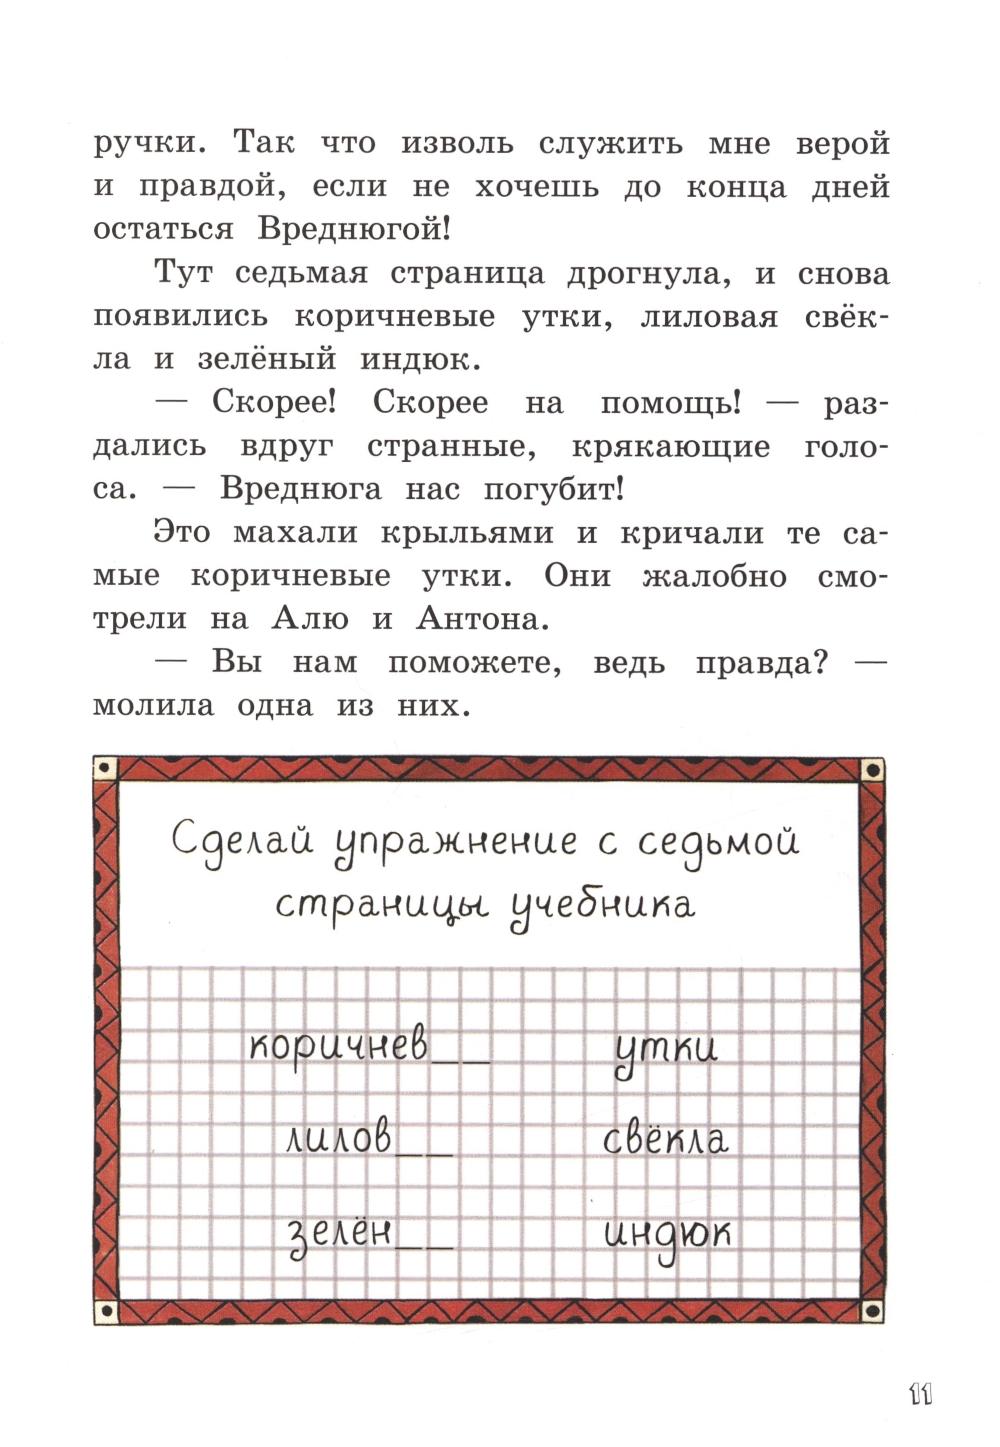 ручки. Так что изволь служить мне верой
и правдой, если не хочешь до конца дней
остаться Вреднюгой!
Тут седьмая страница дрогнула, и снова
появились коричневые утки, лиловая свёк-
ла и зелёный индюк.
— Скорее! Скорее на помощь! — раз-
дались вдруг странные, крякающие голо-
са. — Вреднюга нас погубит!
Это махали крыльями и кричали те са-
мые коричневые утки. Они жалобно смо-
трели на Алю и Антона.
— Вы нам поможете, ведь правда? —
молила одна из них.
Сделай упражнение с седьмой
страницы учебника
коричнев__ утки
лилов__ свёкла
зелён__ индюк
11